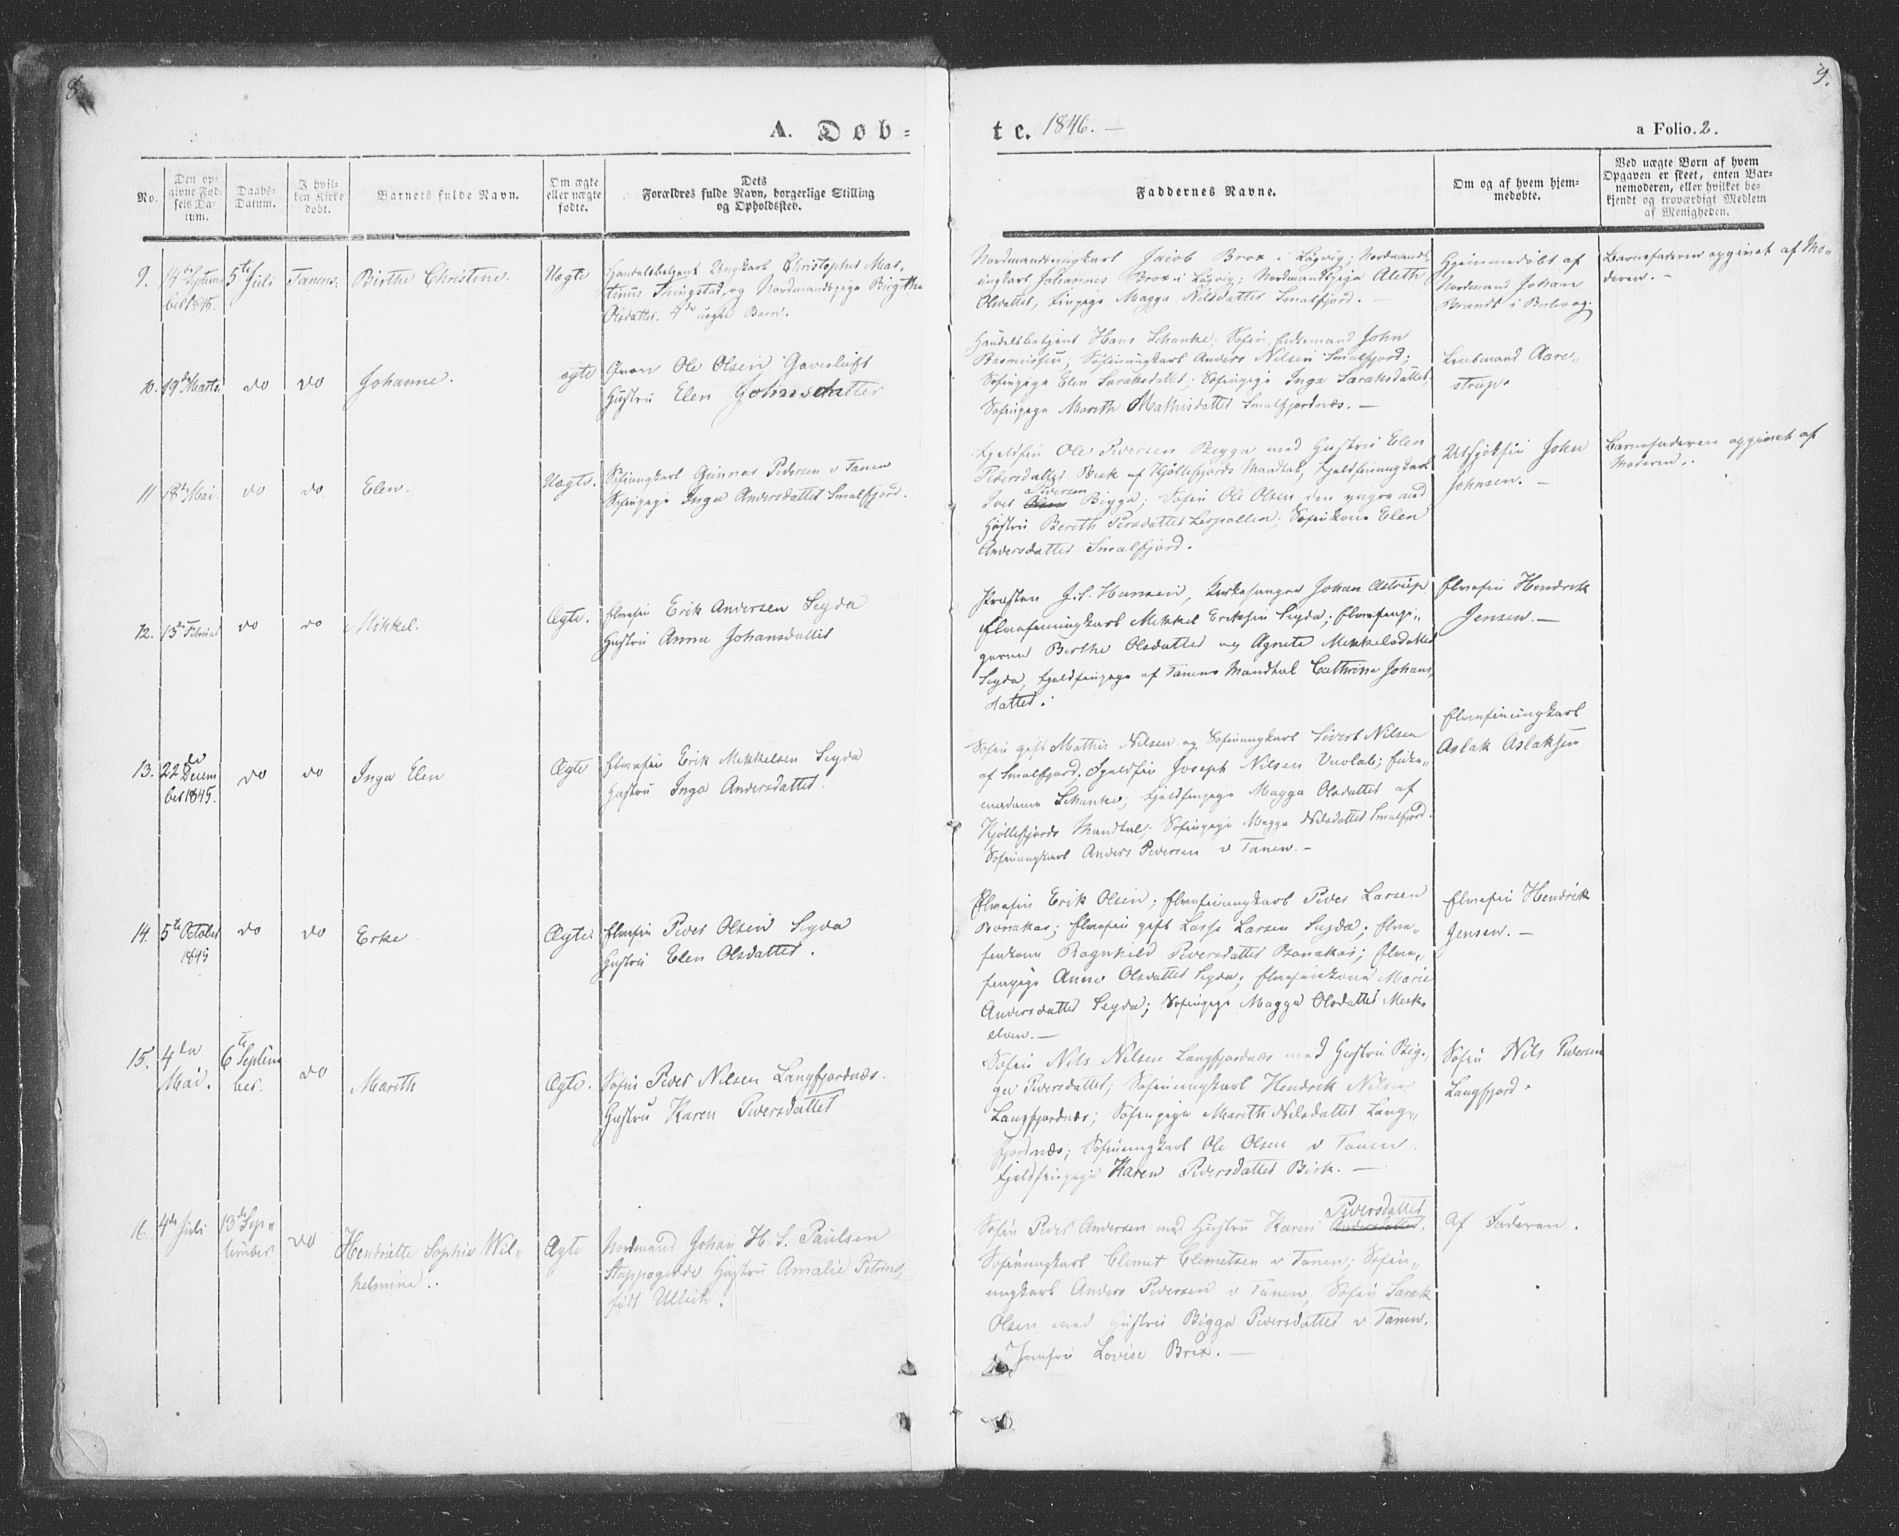 8.
9.
A. Døb-
te. 1846. —
a Folio. 2.
No.
Den opgivne Fødsels Datum.
Daabs-Datum.
I hvilken Kirke døbt.
Barnets fulde Navn.
Om ægte eller uægte fødte.
Dets
Forældres fulde Navn, borgerlige Stilling
og Opholdssted.
Faddernes Navne.
Om og af hvem hjem-
medøbte.
Ved uægte Børn af hvem
Opgaven er skeet, enten Bar-
nemoderen, eller hvilket be-
kjendt og troværdigt Medlem
af Menigheden.
9. 14de Septem
ber 1845. 5te Juli Tanens. Birthe Christine. Uægte
Handelsbetjent Ungkarl Christopher Mar-
tinus Kringstad, og Nordmandspige Birgithe
Olsdatter. 4de uægte Barn.
Nordmandsungkarl Jacob Brox i Løgvig; Nordmands-
ungkarl Johannes Brox i Løgvig; Nordmandspige Aleth
Olsdatter, Finpige Magga Nilsdatter Smalfjord. —
Hjemmedøbt af
Nordmand Johan
Brandt i Berlevog.
Barnefaderen opgivet af Mo-
deren. —
10. 19de Marts do do Johanne. ægte
Qvæn Ole Olsen Gavesluft
Hustru Elen Johnsdatter
Handelsbetjent Hans Schanke; Søfin Fedemand John
Rasmussen, Søfinungkarl Anders Nilsen Smalfjord;
Søfinpige Elen Saraksdatter; Søfinpige Inga Saraksdatter,
Søfinpige Marith Mathisdatter Smalfjordnæs. —
Lensmand Aare-
strup.
11 18de Mai do do. Elen. Uægte.
Søfinungkarl Gunner Pedersen v Tanen
Søfinpige Inga Andersdatter Smalfjord.
Fjeldfin Ole Pedersen Bigga med Hustru Elen
Pedersdatter Birk af Kjøllefjords Mandtal, Fjeldfinungkarl
Iver Olsen Pedersen Bigga; Søfin Ole Olsen den yngre med
Hustru Bereth Persdatter Leirpollen; Søfinkone Elen
Andersdatter Smalfjord. —
Utsjokfin John
Johnsen. —
Barnefaderen opgivet af
Moderen.
12. 15de Februar do do Mikkel. Ægte.
Elvefin Erik Andersen Seyda
Hustru Anna Johansdatter
Præsten J. S. Hansen, Kirkesanger Johan Astrup
Elvefinungkarl Mikkel Eriksen Seyda; Elvefinpi-
gerne Birthe Olsdatter og Agnete Mikkelsdatter
Seyda, Fjeldfinpige af Tanens Mandtal Cathrine Johans-
datter.
Elvefin Hendrik
Jensen. —
13. 22de Decem
ber 1845. do do Inga Elen Ægte
Elvefin Erik Mikkelsen Seyda
Hustru Inga Andersdatter.
Søfin gift Mathis Nilsen og Søfinungkarl Sivert Nilsen
af Smalfjord. Fjeldfin Joseph Nilsen Vuolab;
madame Schanke; Fjeldfinpige Magga Olsdatter af
Kjøllefjords Mandtal; Søfinpige Magga Nilsdatter Smalfjord.
Søfinungkarl Anders Pedersen v Tanen. —
Elvefinungkarl
Aslak Aslaksen
14. 5te October
1845 do do Erke Ægte
Elvefin Peder Olsen Seyda
Hustru Elen Olsdatter.
Elvefin Erik Olsen; Elvefinungkarl Peder Larsen
Bonakas; Elvefin gift Lasse Larsen Seyda; Elve-
finkone Ragnhild Pedersdatter Bonakas; Elve-
finpige Anne Olsdatter Seyda; Elvefinkone Marie
Andersdatter Seyda; Søfinpige Magga Olsdatter Mask-
elven. —
Elvefin Hendrik
Jensen. —
15. 4de
Mai. 6te Septem
ber. do Marith Ægte.
Søfin Peder Nilsen Langfjordnæs.
Hustru Karen Pedersdatter
Søfin Nils Nilsen Langfjordnæs med Hustru Big-
ga Pedersdatter; Søfinungkarl Hendrik Nilsen
Langfjordnæs; Søfinpige Marith Nilsdatter Lang-
fjordnæs; Søfinungkarl Ole Olsen v Tanen.
Fjeldfinpige Karen Pedersdatter Birk. —
Søfin Nils Pedersen
Langfjord.
16. 4de Juli 13de Sep-
tember do Hendriette Sophie Wil-
helmine. Ægte
Nordmand Johan H. S. Paulsen
Stappogiedde Hustru Amalie Petrine,
født Ulleich.
Søfin Peder Andersen med Hustru Karen Andersdatter Pedersdatter.
Søfinungkarl Clemet Clemetsen v Tanen; Søfin-
ungkarl Anders Pedersen v Tanen, Søfin Sarak
Olsen med Hustru Bigga Pedersdatter v Tanen.
Jomfru Lovise Brox. —
Af Faderen.